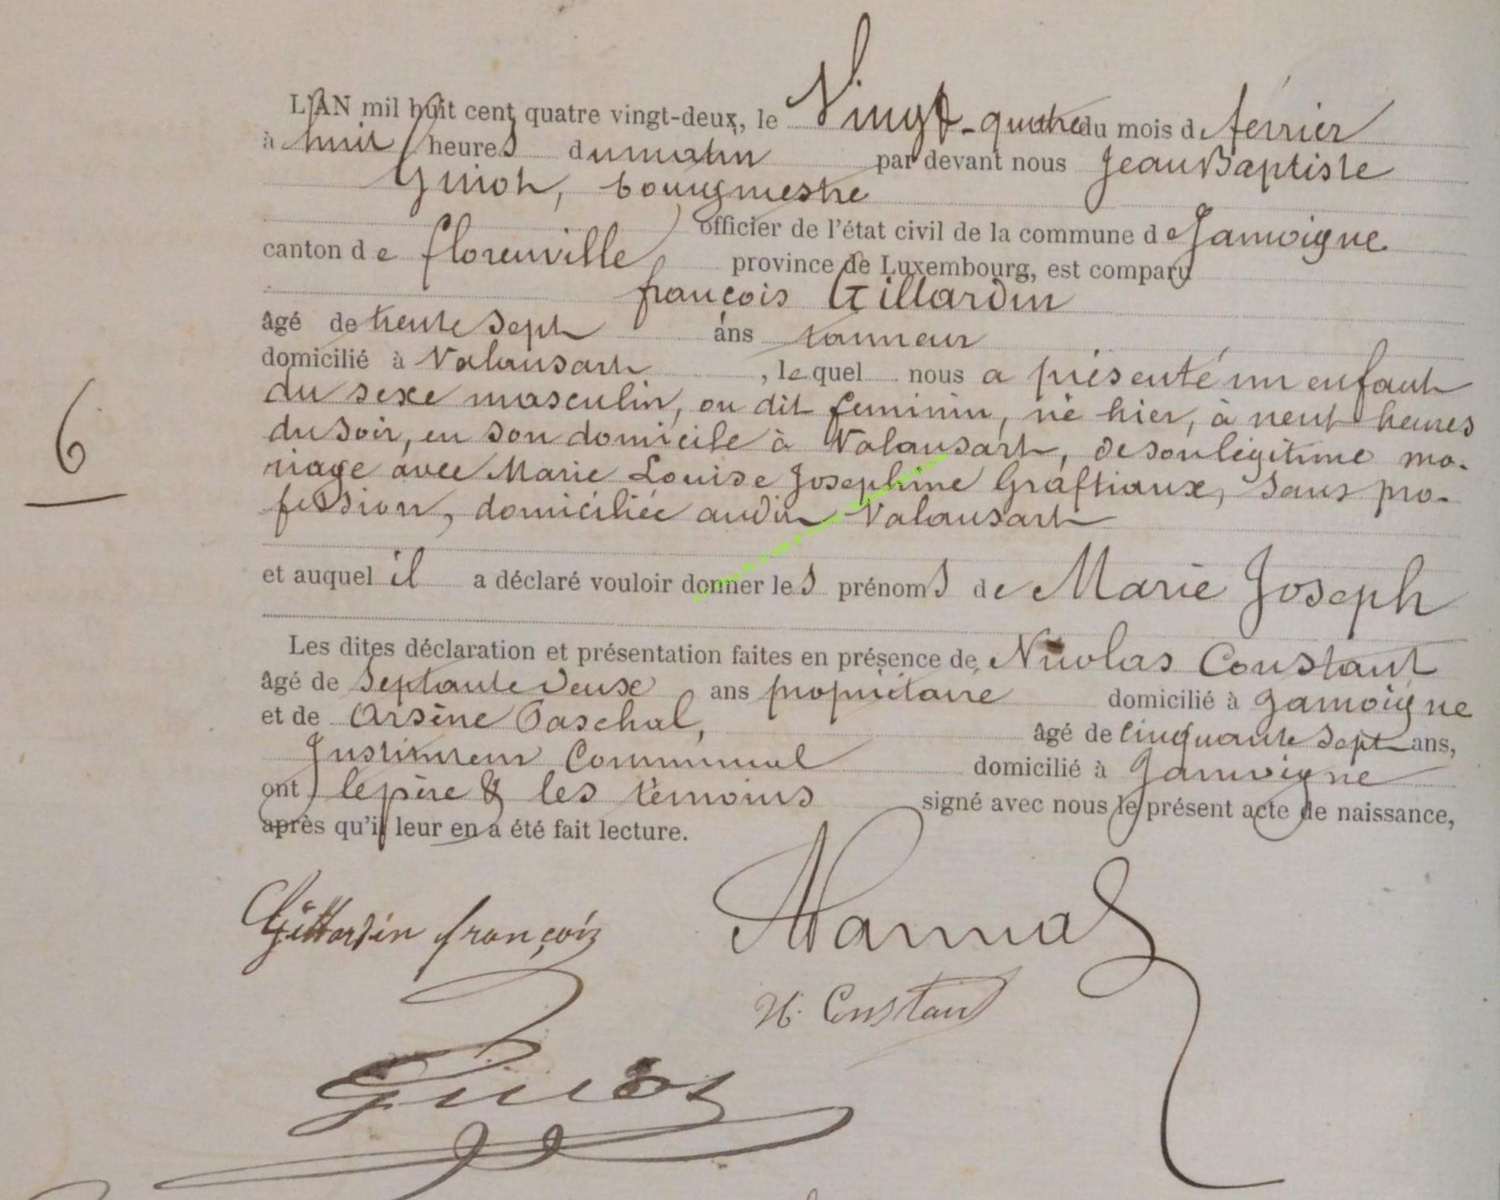 L'AN mil huit cent quatre vingt-deux, le Vingt-quatre du mois de férrier
à huit heures du matin par devant nous Jean Baptiste
Guiot, bourgmestre
officier de l'état civil de la commune de Jamoigne
canton de florenville province de Luxembourg, est comparu
françois Gillardin
âgé de trente sept ans tanneur
domicilié à Valansart, lequel nous a présenté un enfant
du sexe masculin, ou dit feminin, né hier, à neuf heures
du soir, en son domicile à Valansart, de son légitime ma-
riage avec Marie Louise Josephine Graftiaux, sans pro-
fession, domiciliée audit Valansart
et auquel il a déclaré vouloir donner les prénoms de Marie Joseph
Les dites déclaration et présentation faites en présence de Nicolas Constant
âgé de septante deux ans propriétaire domicilié à Jamoigne
et de Arsène Paschal, âgé de cinquante sept ans,
Instituteur Communal domicilié à Jamoigne
ont le père & les témoins signé avec nous le présent acte de naissance,
après qu'il leur en a été fait lecture.
6
Gillardin françois
N. Constant
Guiot